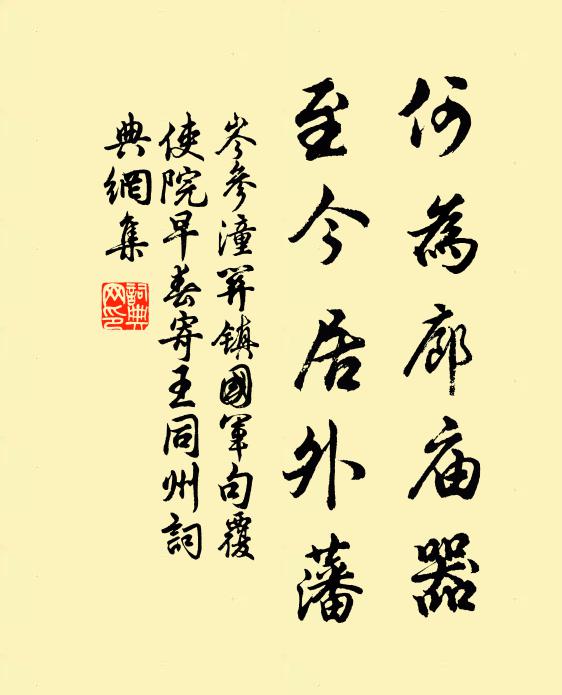 何為廊庙器
至今居外藩
岑參潼關鎮國軍句覆
使院早春寄王同州詞
典網集
詞典
网印